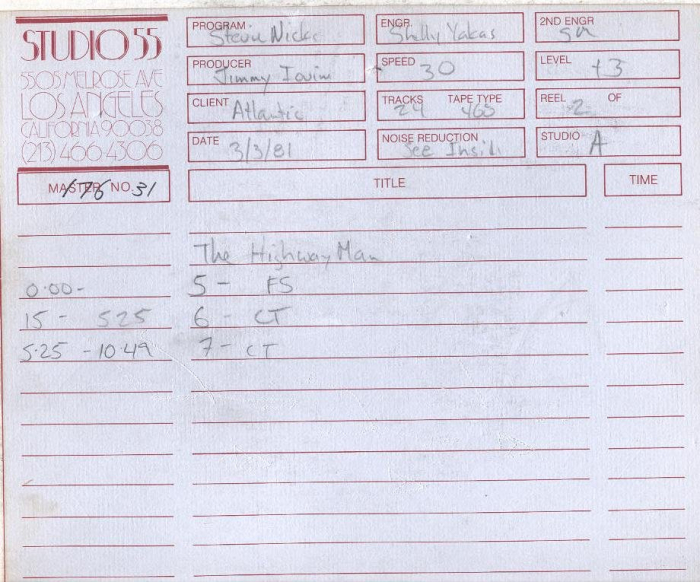 STUDIO 55
5505 MELROSE AVE
LOS ANGELES
CALIFORNIA 90038
(213) 466-4306
PROGRAM Stevie Nicks
ENGR. Shelly Yakas
2ND ENGR
PRODUCER Jimmy Iovine
SPEED 30
LEVEL +3
CLIENT Atlantic
TRACKS 24 TAPE TYPE 465
REEL 2 OF
DATE 3/3/81
NOISE REDUCTION See Inside
STUDIO A
MASTER NO. 176 31
TITLE
TIME
The Highway Man
0.00- 5 - FS
15 - 525 6 - CT
5.25 - 10.49 7 - CT